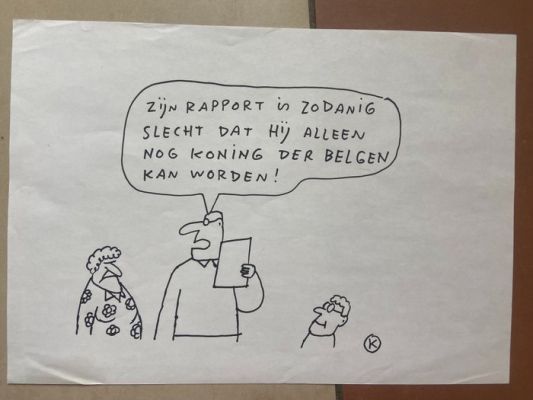 Zijn RAPPORT is ZODANiG
SLECHT DAT Hij ALLEEN
NOG KONiNG DER BELGEN
KAN WORDEN!
K